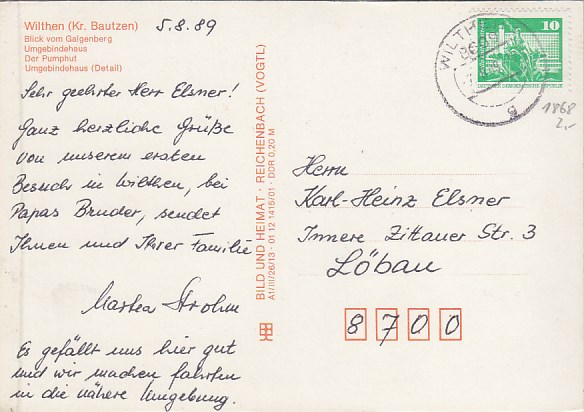 Wilthen (Kr. Bautzen)
Blick vom Galgenberg
Umgebindehaus
Der Pumphut
Umgebindehaus (Detail)
5.8.89
Sehr geehrter Herr Elsner!
Ganz herzliche Grüße
von unserem ersten
Besuch in Wilthen, bei
Papas Bruder, sendet
Ihnen und Ihrer Familie
Martea Strohm
Es gefällt uns hier gut
und wir machen fahrten
in die nähere Umgebung.
BILD UND HEIMAT · REICHENBACH (VOGTL)
A1/III/26/13 · 01 12 1415/01 · DDR 0,20 M
WILTH
10
DEUTSCHE DEMOKRATISCHE REPUBLIK
1868
2,-
Herrn
Karl-Heinz Elsner
Innere Zittauer Str. 3
Löbau
8700